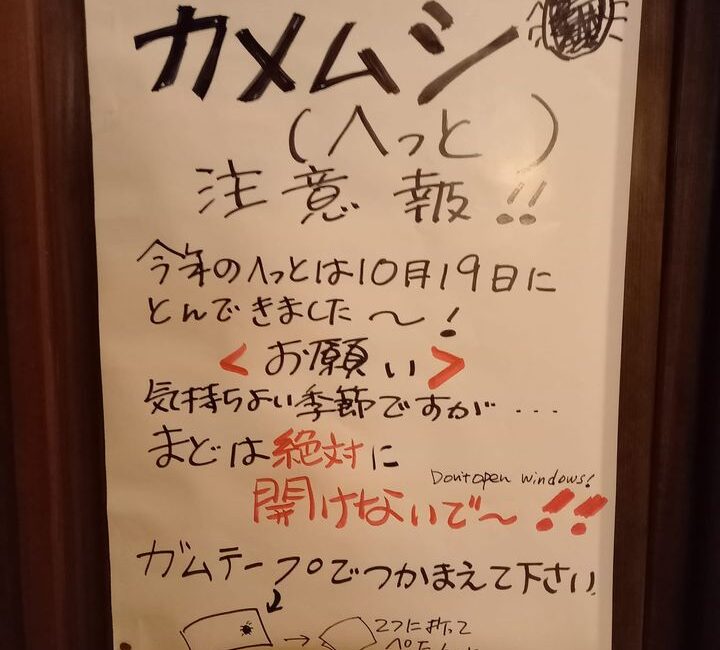 カメムシ
(へっと)
注意報!!
今年のへっとは10月19日に
とんできました〜!
<お願い>
気持ちよい季節ですが...
まどは絶対に
Don't open windows!
開けないで〜!!
ガムテープでつかまえて下さい
2つに折って